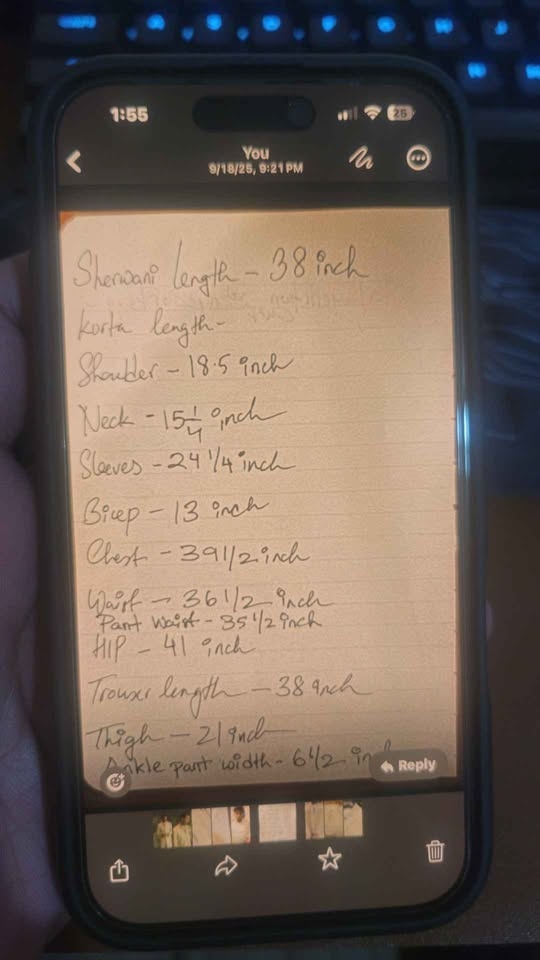 1:55
25
You
9/18/25, 9:21 PM
Sherwani length - 38 inch
Korta length -
Shoulder - 18.5 inch
Neck - 15 1/4 inch
Sleeves - 24 1/4 inch
Bicep - 13 inch
Chest - 39 1/2 inch
Waist - 36 1/2 inch
Pant Waist - 35 1/2 inch
HIP - 41 inch
Trouser length - 38 inch
Thigh - 21 inch
Ankle pant width - 6 1/2 inch
Reply